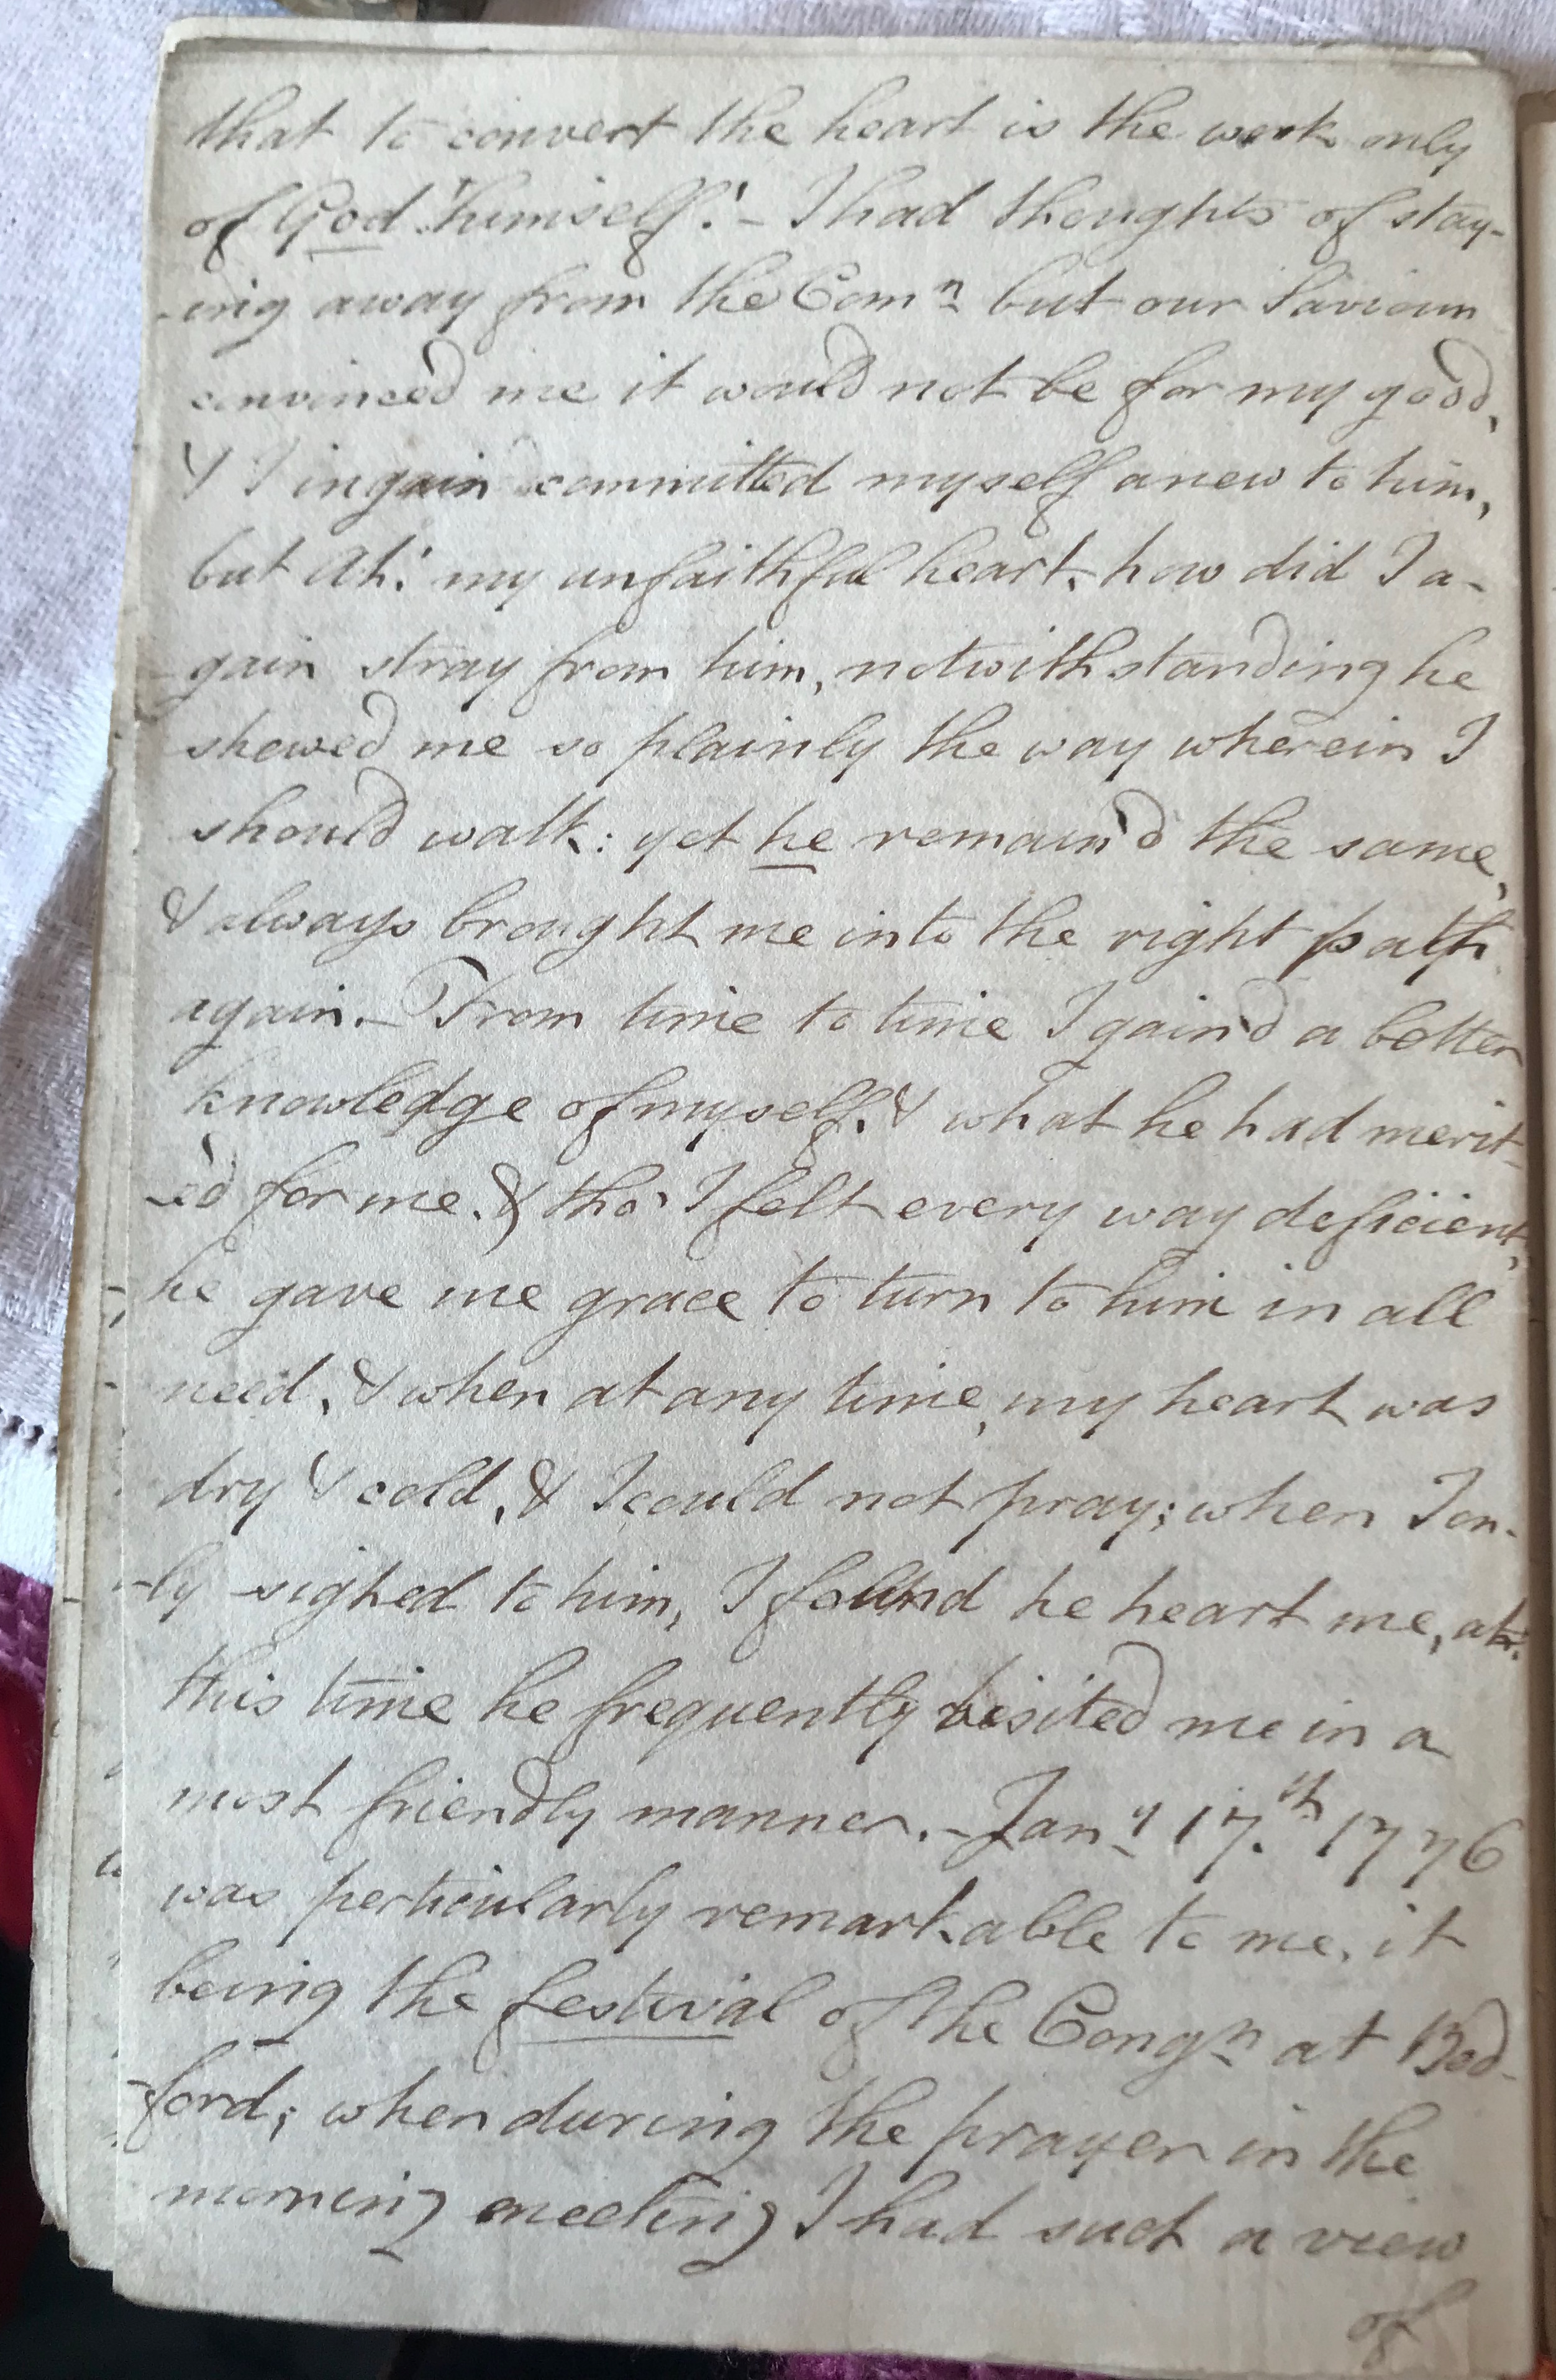 that to convert the heart is the work only
of God himself! - I had thoughts of stay-
-ing away from the Comn but our Saviour
convinced me it would not be for my good,
& I committed myself anew to him,
but Ah! my unfaithful heart, how did I a-
-gain stray from him, notwithstanding he
shewed me so plainly the way wherein I
should walk: yet he remain'd the same,
& always brought me into the right path
again. - From time to time I gain'd a better
knowledge of myself, & what he had merit-
-ed for me. & tho' I felt every way deficient,
he gave me grace to turn to him in all
need, & when at any time, my heart was
dry & cold, & I could not pray; when I on-
-ly sighed to him, I found he heart me, at
this time he frequently visited me in a
most friendly manner. - Jany 17.th 1776
was perticularly remarkable to me, it
being the festival of the Congn at Bed-
-ford; when during the prayer in the
morning meeting I had such a view
of